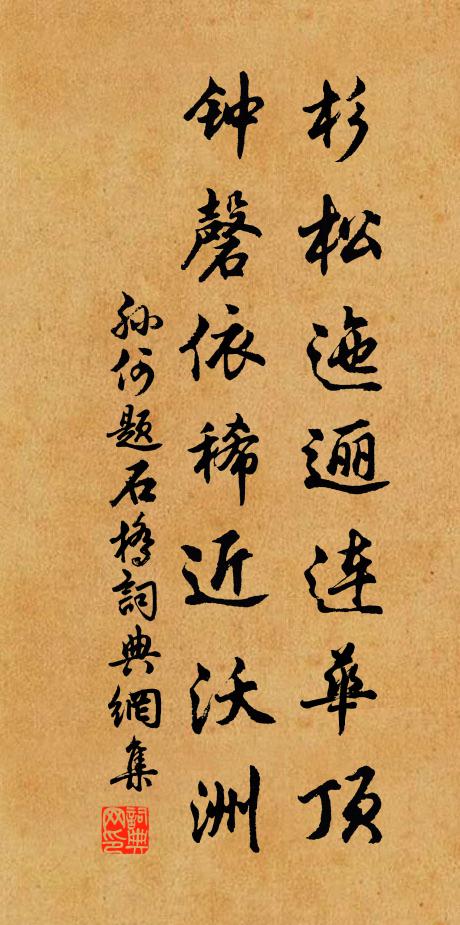 杉松迤逦连华顶
钟磬依稀近沃洲
孙何题石桥詞典網集
詞典网印